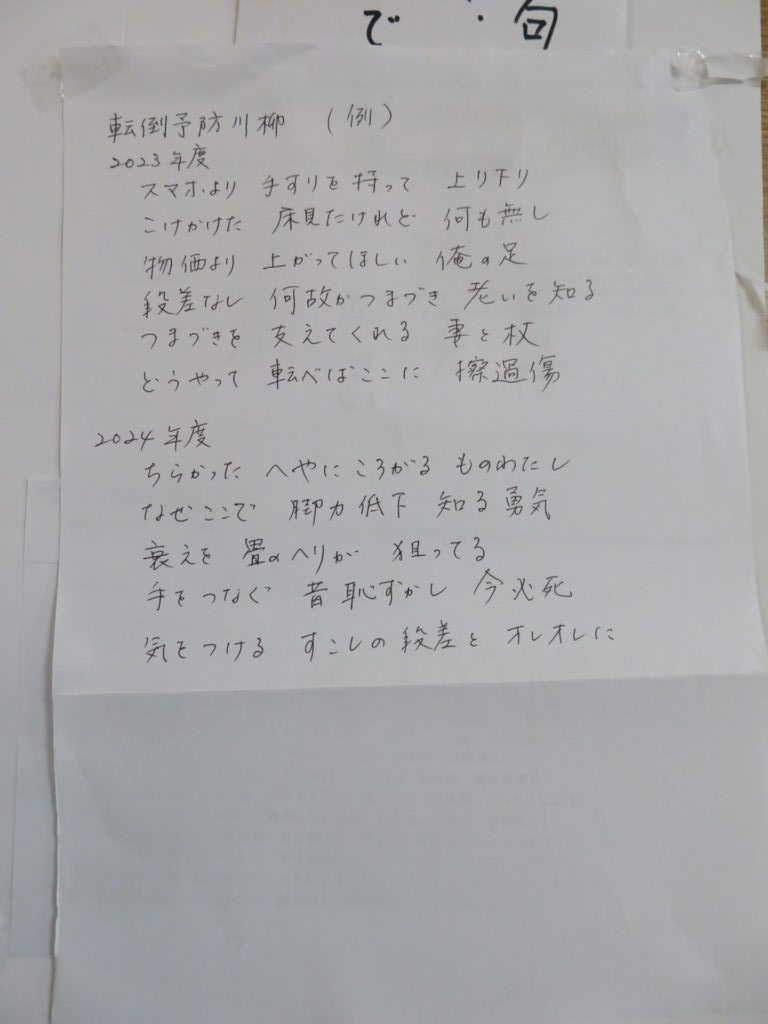 で・句
転倒予防川柳 (例)
2023年度
スマホより 手すりを持って 上り下り
こけかけた 床見たけれど 何も無し
物価より 上がってほしい 俺の足
段差なし 何故かつまづき 老いを知る
つまづきを 支えてくれる 妻と杖
どうやって 転べばここに 擦過傷
2024年度
ちらかった へやに ころがる ものわたし
なぜここで 脚力低下 知る勇気
衰えを 畳のヘリが 狙ってる
手をつなぐ 昔恥ずかし 今必死
気をつける すこしの段差と オレオレに